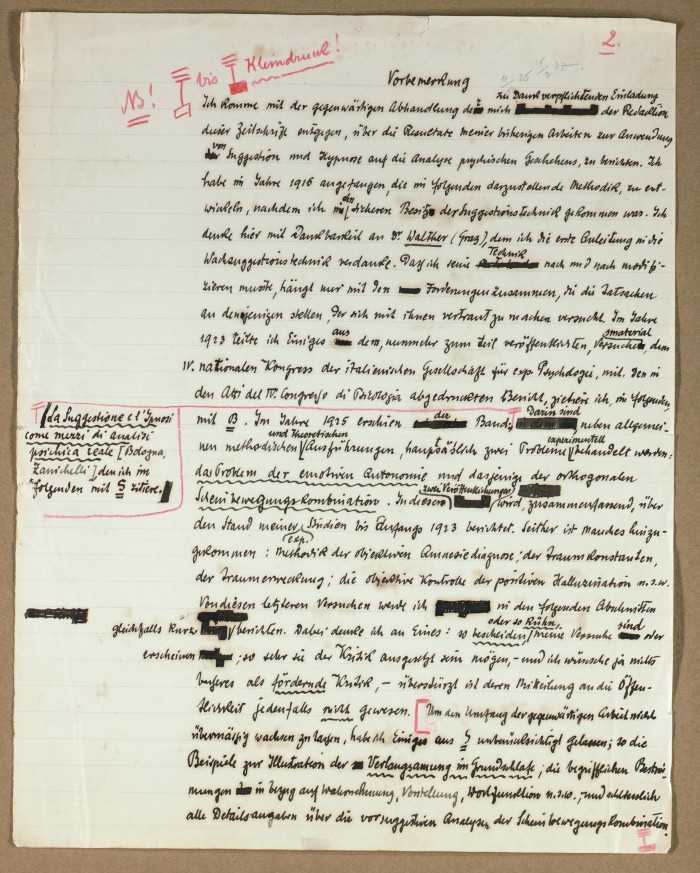 2.
NB! bis Kleindruck!
Vorbemerkung
zu Dank verpflichtenden Einladung
Ich komme mit der gegenwärtigen Abhandlung der mich der Redaktion
dieser Zeitschrift entgegen, über die Resultate meiner bisherigen Arbeiten zur Anwendung
von Suggestion und Hypnose auf die Analyse psychischen Geschehens, zu berichten. Ich
habe im Jahre 1916 angefangen, die im folgenden darzustellende Methodik, zu ent-
wickeln, nachdem ich in den sicheren Besitz der Suggestionstechnik gekommen war. Ich
denke hier mit Dankbarkeit an Dr. Walther (Graz), dem ich die erste Anleitung in die
Wachsuggestionstechnik verdanke. Dass ich seine Technik nach und nach modifi-
zieren musste, hängt nur mit den Forderungen zusammen, die die Tatsachen
an denjenigen stellen, der sich mit ihnen vertraut zu machen versucht. Im Jahre
1923 teilte ich Einiges aus dem, nunmehr zum Teil veröffentlichten, Versuchsmaterial, dem
IV. nationalen Kongress der italienischen Gesellschaft für exp. Psychologie, mit. Den in
den Atti del IV. Congresso di Psicologia abgedruckten Bericht, zitiere ich, im folgenden,
mit B. Im Jahre 1925 erschien der Band: Darin sind neben allgemei-
la Suggestione e l'Ipnosi
come mezzi di analisi
psichica reale [Bologna,
Zanichelli] den ich im
Folgenden mit S zitiere.
nen methodischen und theoretischen Ausführungen, hauptsächlich zwei Probleme experimentell behandelt worden:
das Problem der emotiven Autonomie und dasjenige der orthogonalen
Scheinbewegungskombination. In diesen zwei Veröffentlichungen wird, zusammenfassend, über
den Stand meiner exp. Studien bis Anfangs 1923 berichtet. Seither ist manches hinzu-
gekommen: Methodik der objektiven Amnesiediagnose; der Traumkonstanten,
der Traumerweckung; die objektive Kontrolle der positiven Halluzination u.s.w.
Von diesen letzteren Versuchen werde ich in den folgenden Abschnitten
gleichfalls kurz berichten. Dabei denke ich an Eines: so bescheiden oder so kühn, meine Versuche sind oder
erscheinen; so sehr sie der Kritik ausgesetzt sein mögen, – und ich wünsche ja nichts
besseres als fördernde Kritik, – überstürzt ist deren Mitteilung an die Öffen-
tlichkeit jedenfalls nicht gewesen. [Um den Umfang der gegenwärtigen Arbeit nicht
übermässig wachsen zu lassen, habe ich Einiges aus S unberücksichtigt gelassen; so die
Beispiele zur Illustration der Verlangsamung im Grundschlafe; die begrifflichen Bestim-
mungen in bezug auf Wahrnehmung, Vorstellung, Wortfunktion u.s.w.; und schliesslich
alle Detailsangaben über die vorsuggestiven Analysen der Scheinbewegungskombination.